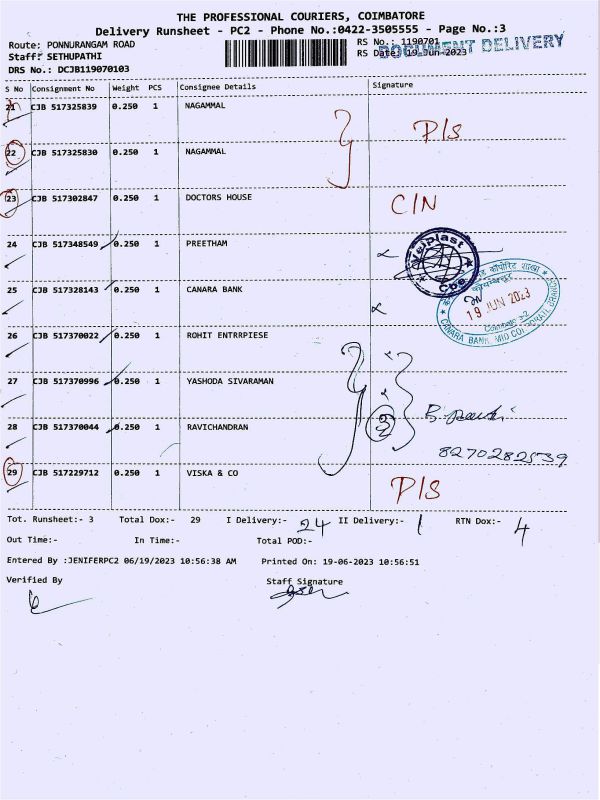 THE PROFESSIONAL COURIERS, COIMBATORE
Delivery Runsheet - PC2 - Phone No.:0422-3505555 - Page No.:3
Route: PONNURANGAM ROAD
RS No.: 1190701
DOCUMENT DELIVERY
Staff: SETHUPATHI
RS Date: 19-Jun-2023
DRS No.: DCJB119070103
S No Consignment No Weight PCS Consignee Details Signature
21 CJB 517325839 0.250 1 NAGAMMAL
P/S
22 CJB 517325830 0.250 1 NAGAMMAL
23 CJB 517302847 0.250 1 DOCTORS HOUSE C/N
24 CJB 517348549 0.250 1 PREETHAM
Welplast
Cbe
25 CJB 517328143 0.250 1 CANARA BANK
कॉर्पोरेट शाखा
19 JUN 2023
Coimbatore-2
CANARA BANK, MID CORPORATE BRANCH
26 CJB 517370022 0.250 1 ROHIT ENTRRPIESE
27 CJB 517370996 0.250 1 YASHODA SIVARAMAN
28 CJB 517370044 0.250 1 RAVICHANDRAN
3
8270282539
29 CJB 517229712 0.250 1 VISKA & CO P/S
Tot. Runsheet:- 3 Total Dox:- 29 I Delivery:- 24 II Delivery:- 1 RTN Dox:- 4
Out Time:- In Time:- Total POD:-
Entered By :JENIFERPC2 06/19/2023 10:56:38 AM Printed On: 19-06-2023 10:56:51
Verified By Staff Signature